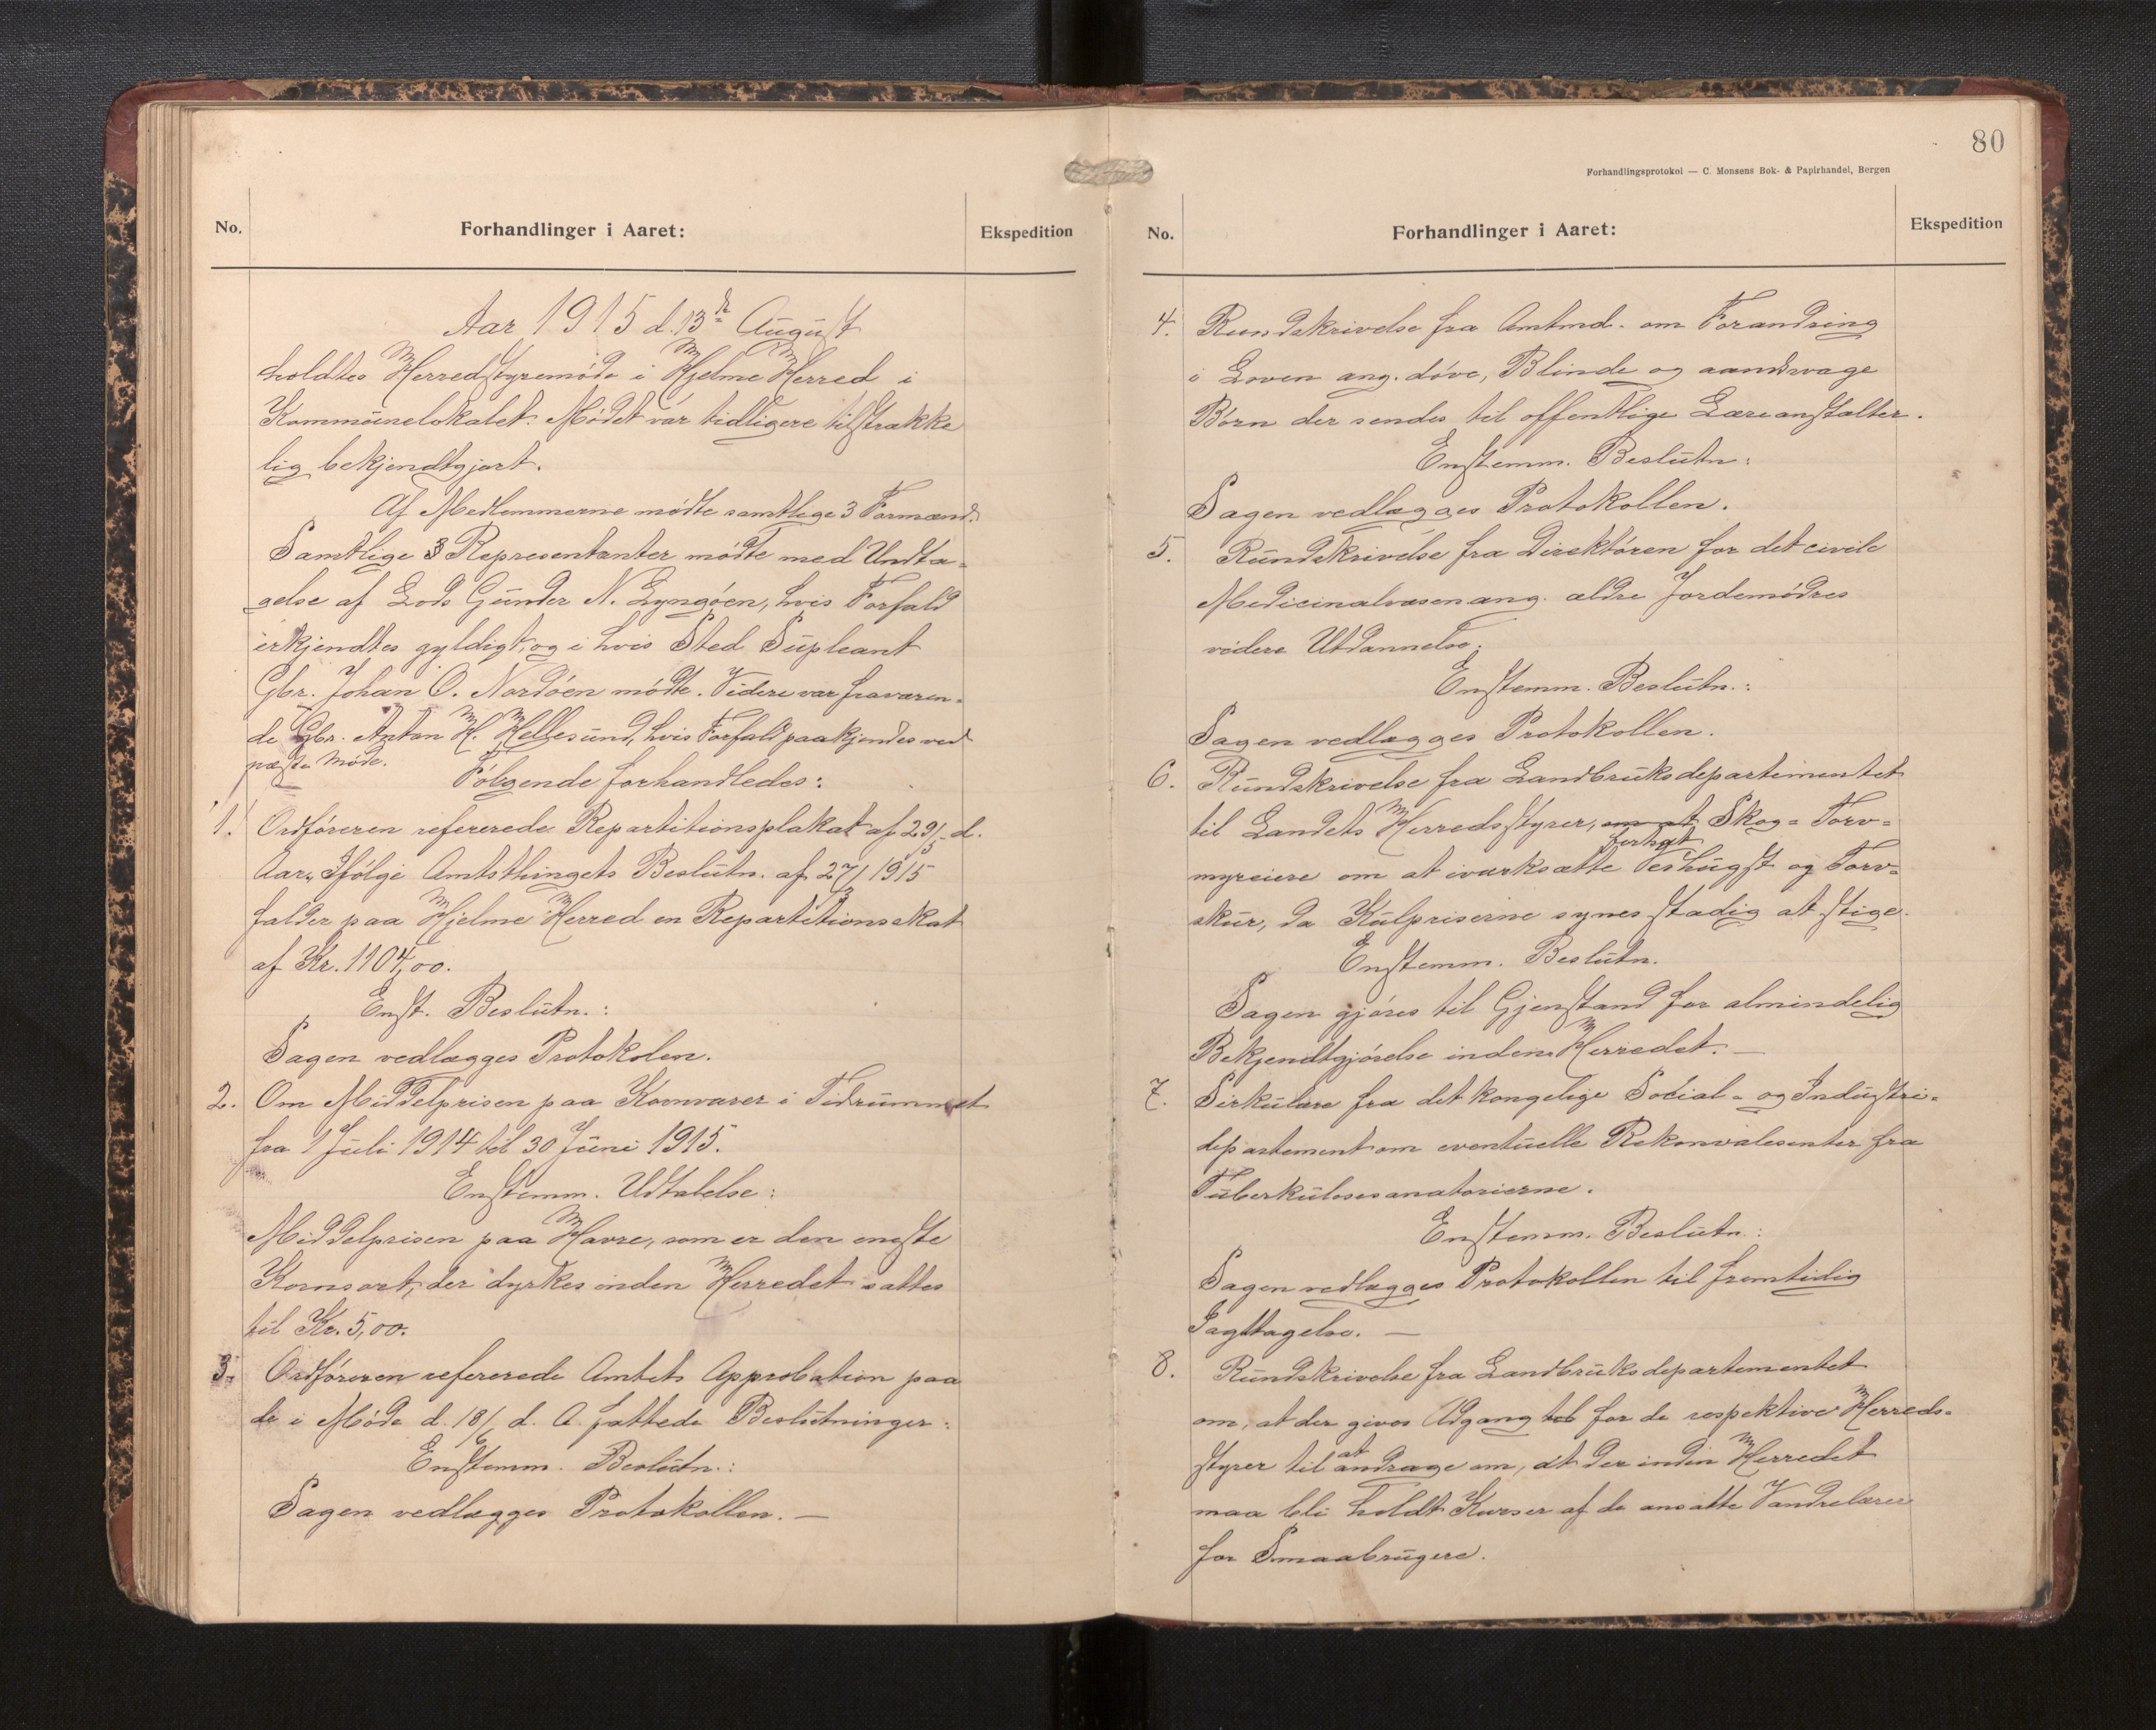 No.
Forhandlinger i Aaret:
Ekspedition
Aar 1915 d. 13de August
holdtes Herredstyremøde i Hjelme Herred i
Kommunelokalet. Mødet var tidligere tilstrække
lig bekjendtgjort.
Af Medlemmerne mødte samtlige 3 Formænd.
Samtlige Representanter mødte med Undta-
gelse af Lods Gunder N. Lyngøen, hvis Forfald
erkjendtes gyldigt, og i hvis Sted Supleant
Gbr. Johan O. Nordøen mødte. Videre var fraværen-
de Gbr. Anton H. Hellesund, hvis Forfald paakjendes ved
næste Møde.
Følgende forhandledes:
1. Ordføreren refererede Repartitionsplakat af 29/5 d.
Aar, Ifølge Amtsthingets Beslutn. af 27/3 1915
falder paa Hjelme Herred en Repartitionsskat
af Kr. 1104,00.
Enst. Beslutn.:
Sagen vedlægges Protokolen.
2. Om Middelprisen paa Kornvarer i Tidrummet
fra 1 Juli 1914 til 30 Juni 1915.
Enstemm. Udtalelse:
Middelprisen paa Havre, som er den eneste
Kornsort, der dyrkes inden Herredet sættes
til Kr. 5,00.
3. Ordføreren refererede Amtets Approbation paa
de i Møde d. 18/6 d. A. fattede Beslutninger:
Enstemm. Beslutn.:
Sagen vedlægges Protokollen. —
80
Forhandlingsprotokol — C. Monsens Bok- & Papirhandel, Bergen
No.
Forhandlinger i Aaret:
Ekspedition
4. Rundskrivelse fra Amtmd. om Forandring
i Loven ang. døve, Blinde og aandsvage
Børn der sendes til offentlige Læreanstalter.
Enstemm. Beslutn:
Sagen vedlægges Protokollen.
5. Rundskrivelse fra Direktøren for det civile
Medicinalvæsen ang. ældre Jordemødres
videre Utdannelse.
Enstemm. Beslutn.:
Sagen vedlægges Protokollen.
6. Rundskrivelse fra Landbruksdepartementet
til Landets Herredsstyrer, om at Skog- Torv-
fortsat
myreiere om at iværksætte Vedhugst og Torv-
skur, da Kulpriserne synes stadig at stige.
Enstemm. Beslutn.
Sagen gjøres til Gjenstand for almindelig
Bekjendtgjørelse inden Herredet. —
7. Sirkulære fra det kongelige Social- og Industri-
departement om eventuelle Rekonvalesenter fra
Tuberkulosesanatorierne.
Enstemm. Beslutn:
Sagen vedlægges Protokollen til fremtidig
Iagttagelse. —
8. Rundskrivelse fra Landbruksdepartementet
om, at der gives Adgang til for de respektive Herreds-
styrer til at andrage om, at der inden Herredet
maa bli holdt Kurser af de ansatte Vandrelærer
for Smaabrugere.